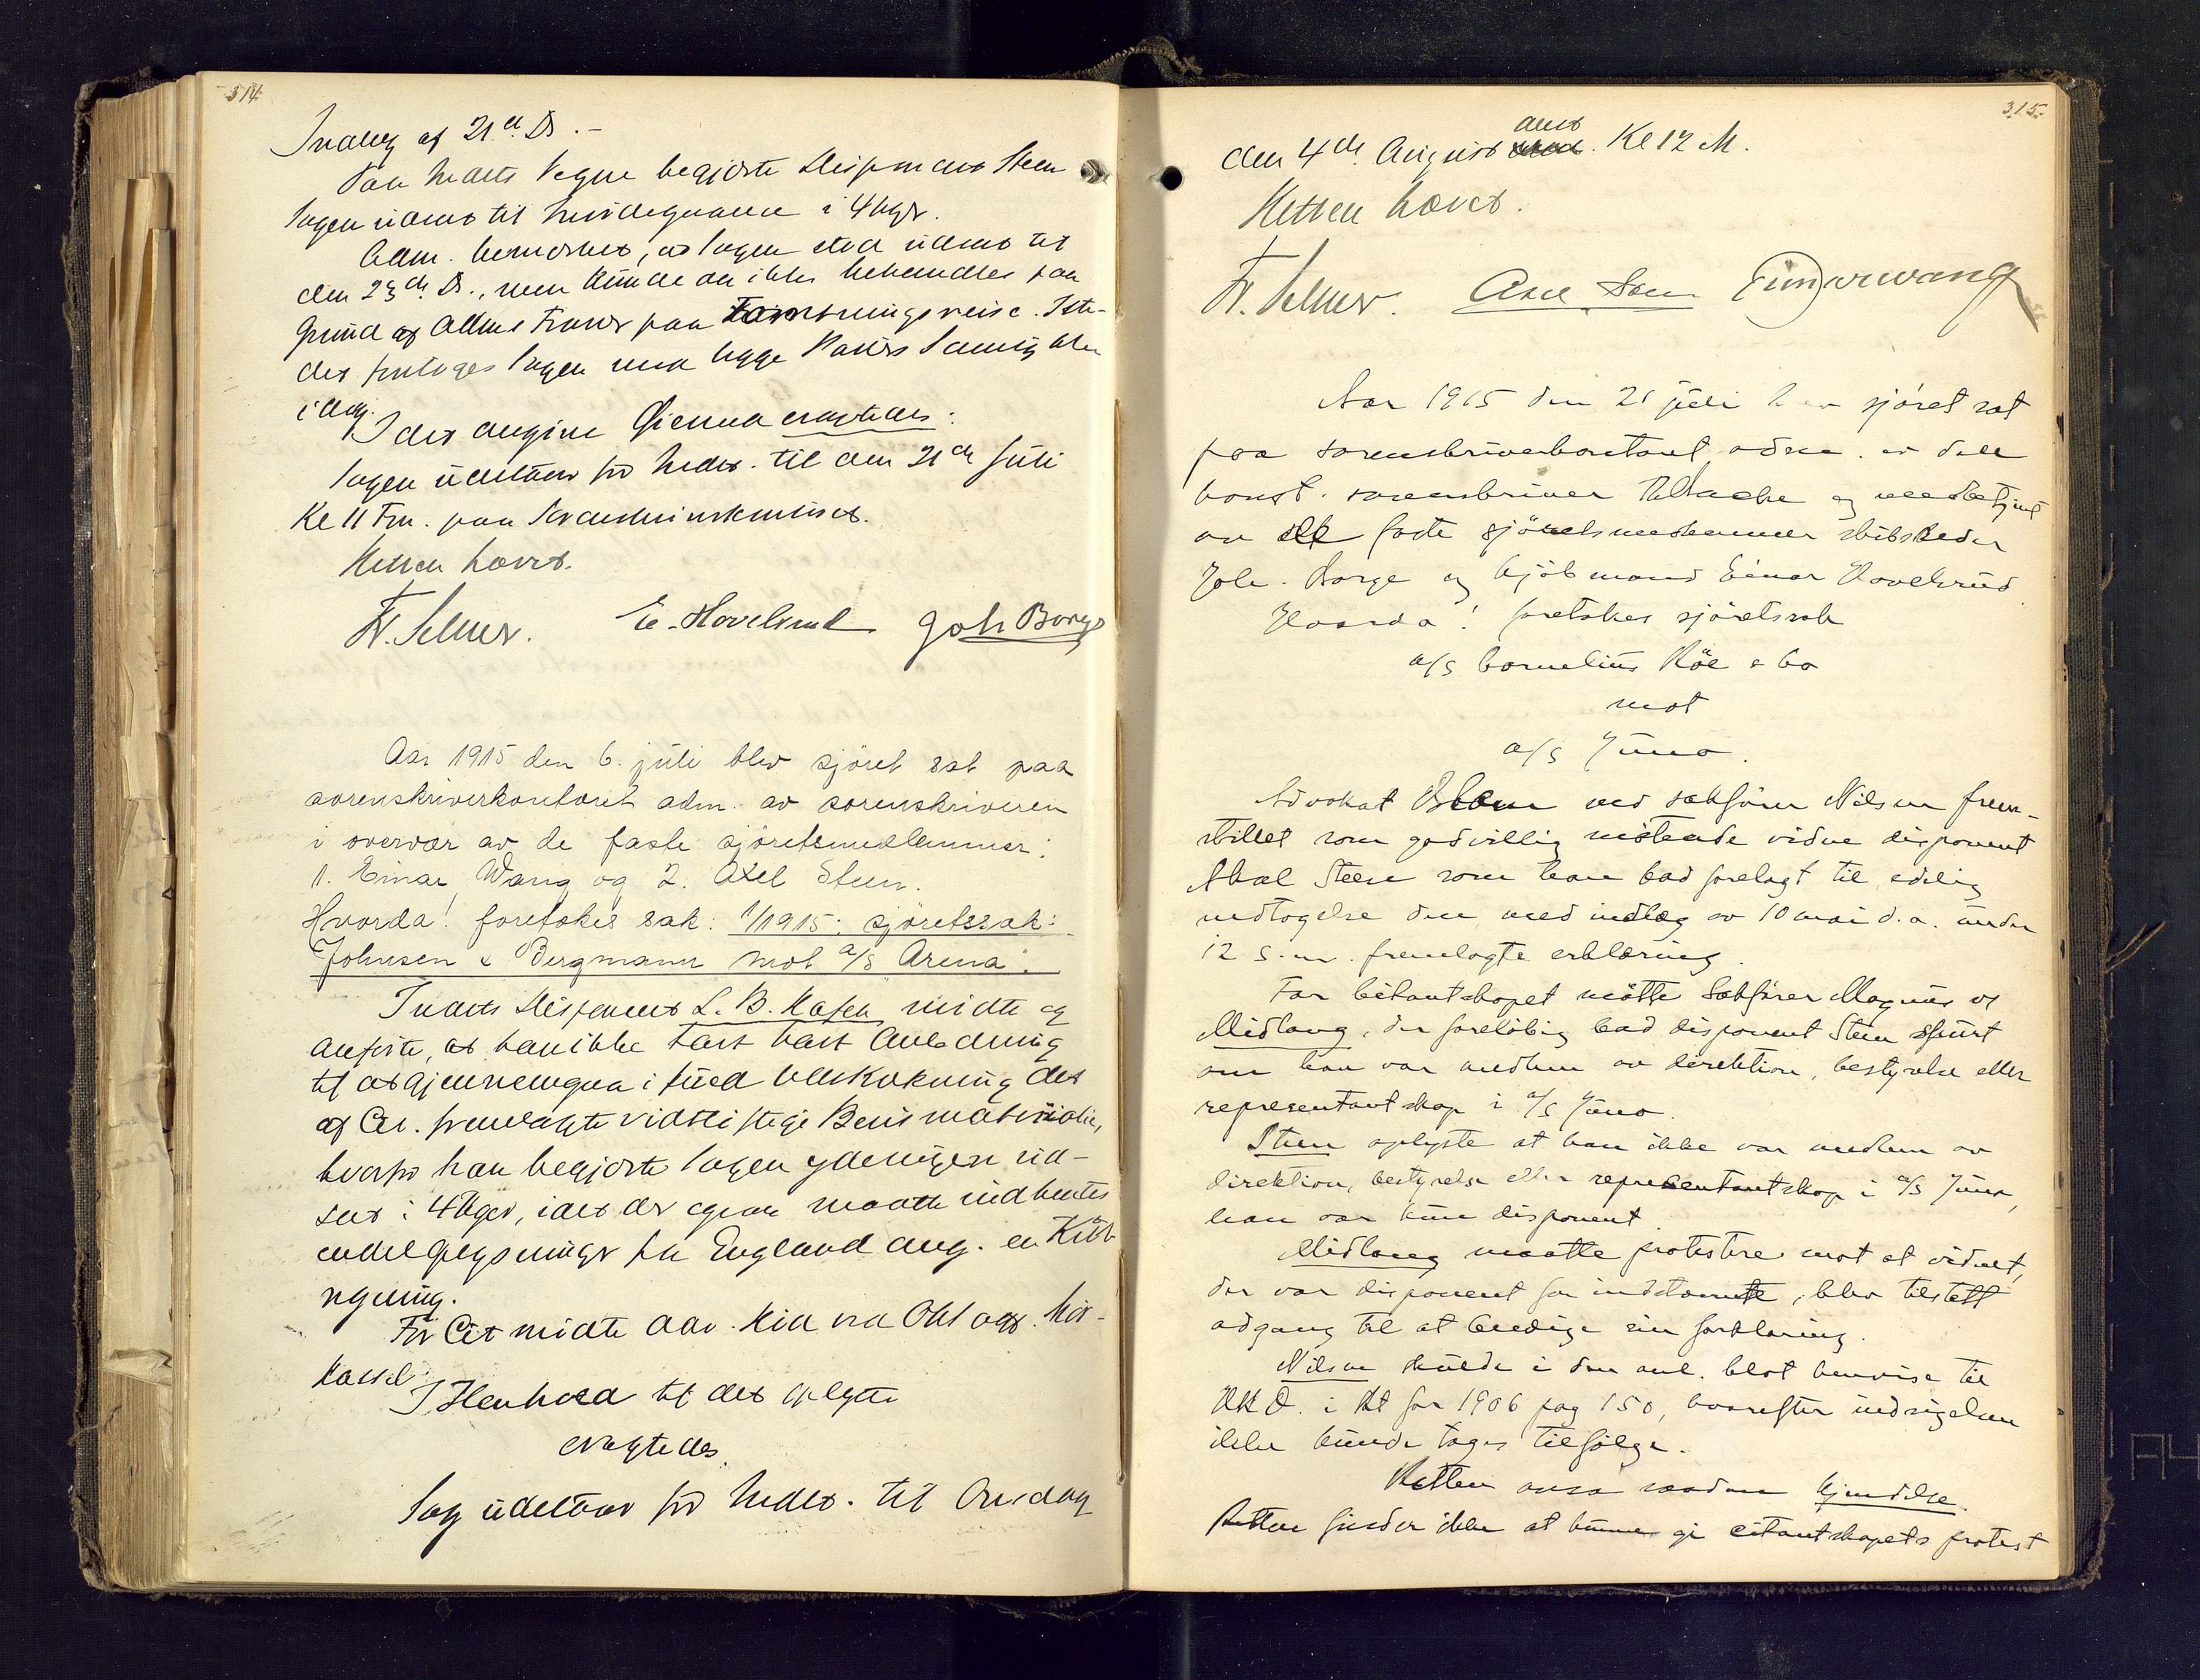 314
Indlæg af 21de Ds. –
Paa Indcits Vegne begjærte Disponent Steen
Sagen udsat til Imødegaaelse i 4 Uger.
Adm. bemærket, at Sagen stod udsat til
den 23de Ds., men kunde da ikke behandles paa
Grund af Adms Fravær paa Forretningsreise. Iste-
det foretages Sagen med begge Parters Samtykke
idag.
I det angivne Øiemed eragtedes:
Sagen udstaar for Indct. til den 21de Juli
Kl 11 Fm. paa Sorenskriverkontoret.
Retten hævet.
Fr. Selmer. E. Hovelsrud Joh Borge
Aar 1915 den 6. juli blev sjøret sat paa
sorenskriverkontoret adm. av sorenskriveren
i overvær av de faste sjøretsmedlemmer:
1. Einar Wang og 2. Axel Steen.
Hvorda! foretokes sak: 1/1915: sjøretssak:
Johnsen & Bergmann mot A/S Arena.
Indcits Disponent L. B. mødte og
anførte, at han ikke havt Anledning
til at gjennemgaa i fuld Udstrækning det
af Cit. fremlagte vidtløftige Bevismateriale,
hvorfor han begjærte Sagen yderligere ud-
sat i 4 Uger, idet der ogsaa maatte indhentes
endel Oplysninger fra England ang. en Kul-
regning.
For Cit mødte Adv. ved
I Henhold til det oplyste
eragtedes
Sag udstaar for Indct. til Onsdag
315.
den 4de August anst Kl 12 M.
Retten hævet.
Fr. Selmer. Axel Steen Einar Wang
Aar 1915 den 21 juli blev sjøret sat
paa sorenskriverkontoret adm. av den
konst. sorenskriver og medbetjent
av de faste sjöretsmedlemmer skibsreder
Joh. Borge og kjöbmand Einar Hovelsrud
Hvorda! foretokes sjöretssak
a/s Cornelius Röe & Co
mot
a/s Juno.
Advokat Blom ved sakförer Nilsen frem-
stillet som godvillig mötende vidne disponent
Axel Steen som han bad forelagt til edelig
vedtagelse den med indlæg av 10 mai d.a. under
12 s.m. fremlagte erklæring.
For citantskapet mötte Sakförer Magnus
Midlang, der foreløbig bad disponent Steen spurt
om han var medlem av direktion, bestyrelse eller
representantskap i A/S Juno.
Steen oplyste at han ikke var medlem av
direktion, bestyrelse eller representantskap i A/S Juno,
han var kun disponent.
Midlang maatte protestere mot at vidnet,
der var disponent for indstævnte, blev tilstett
adgang til at beedige sin forklaring.
Nilsen skulde i den anl. blot henvise til
HKD. i Rt for 1906 pag 150, hvorefter indsigelsen
ikke kunde tages tilfölge.
Retten avsa saadan kjendelse
Retten finder ikke at kunne gi citantskapets protest